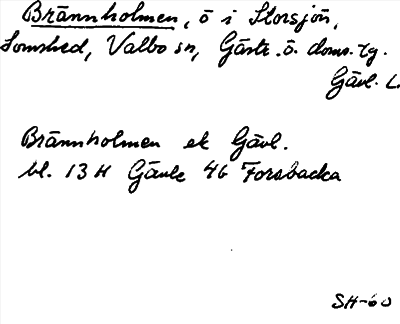 Brännholmen, ö i Storsjön,
Valbo sn, Gästr. ö. doms. tg.
Gävl. L.
Brännholmen ek Gävl.
bl. 13 H Gävle 4G Forsbacka
SH-60